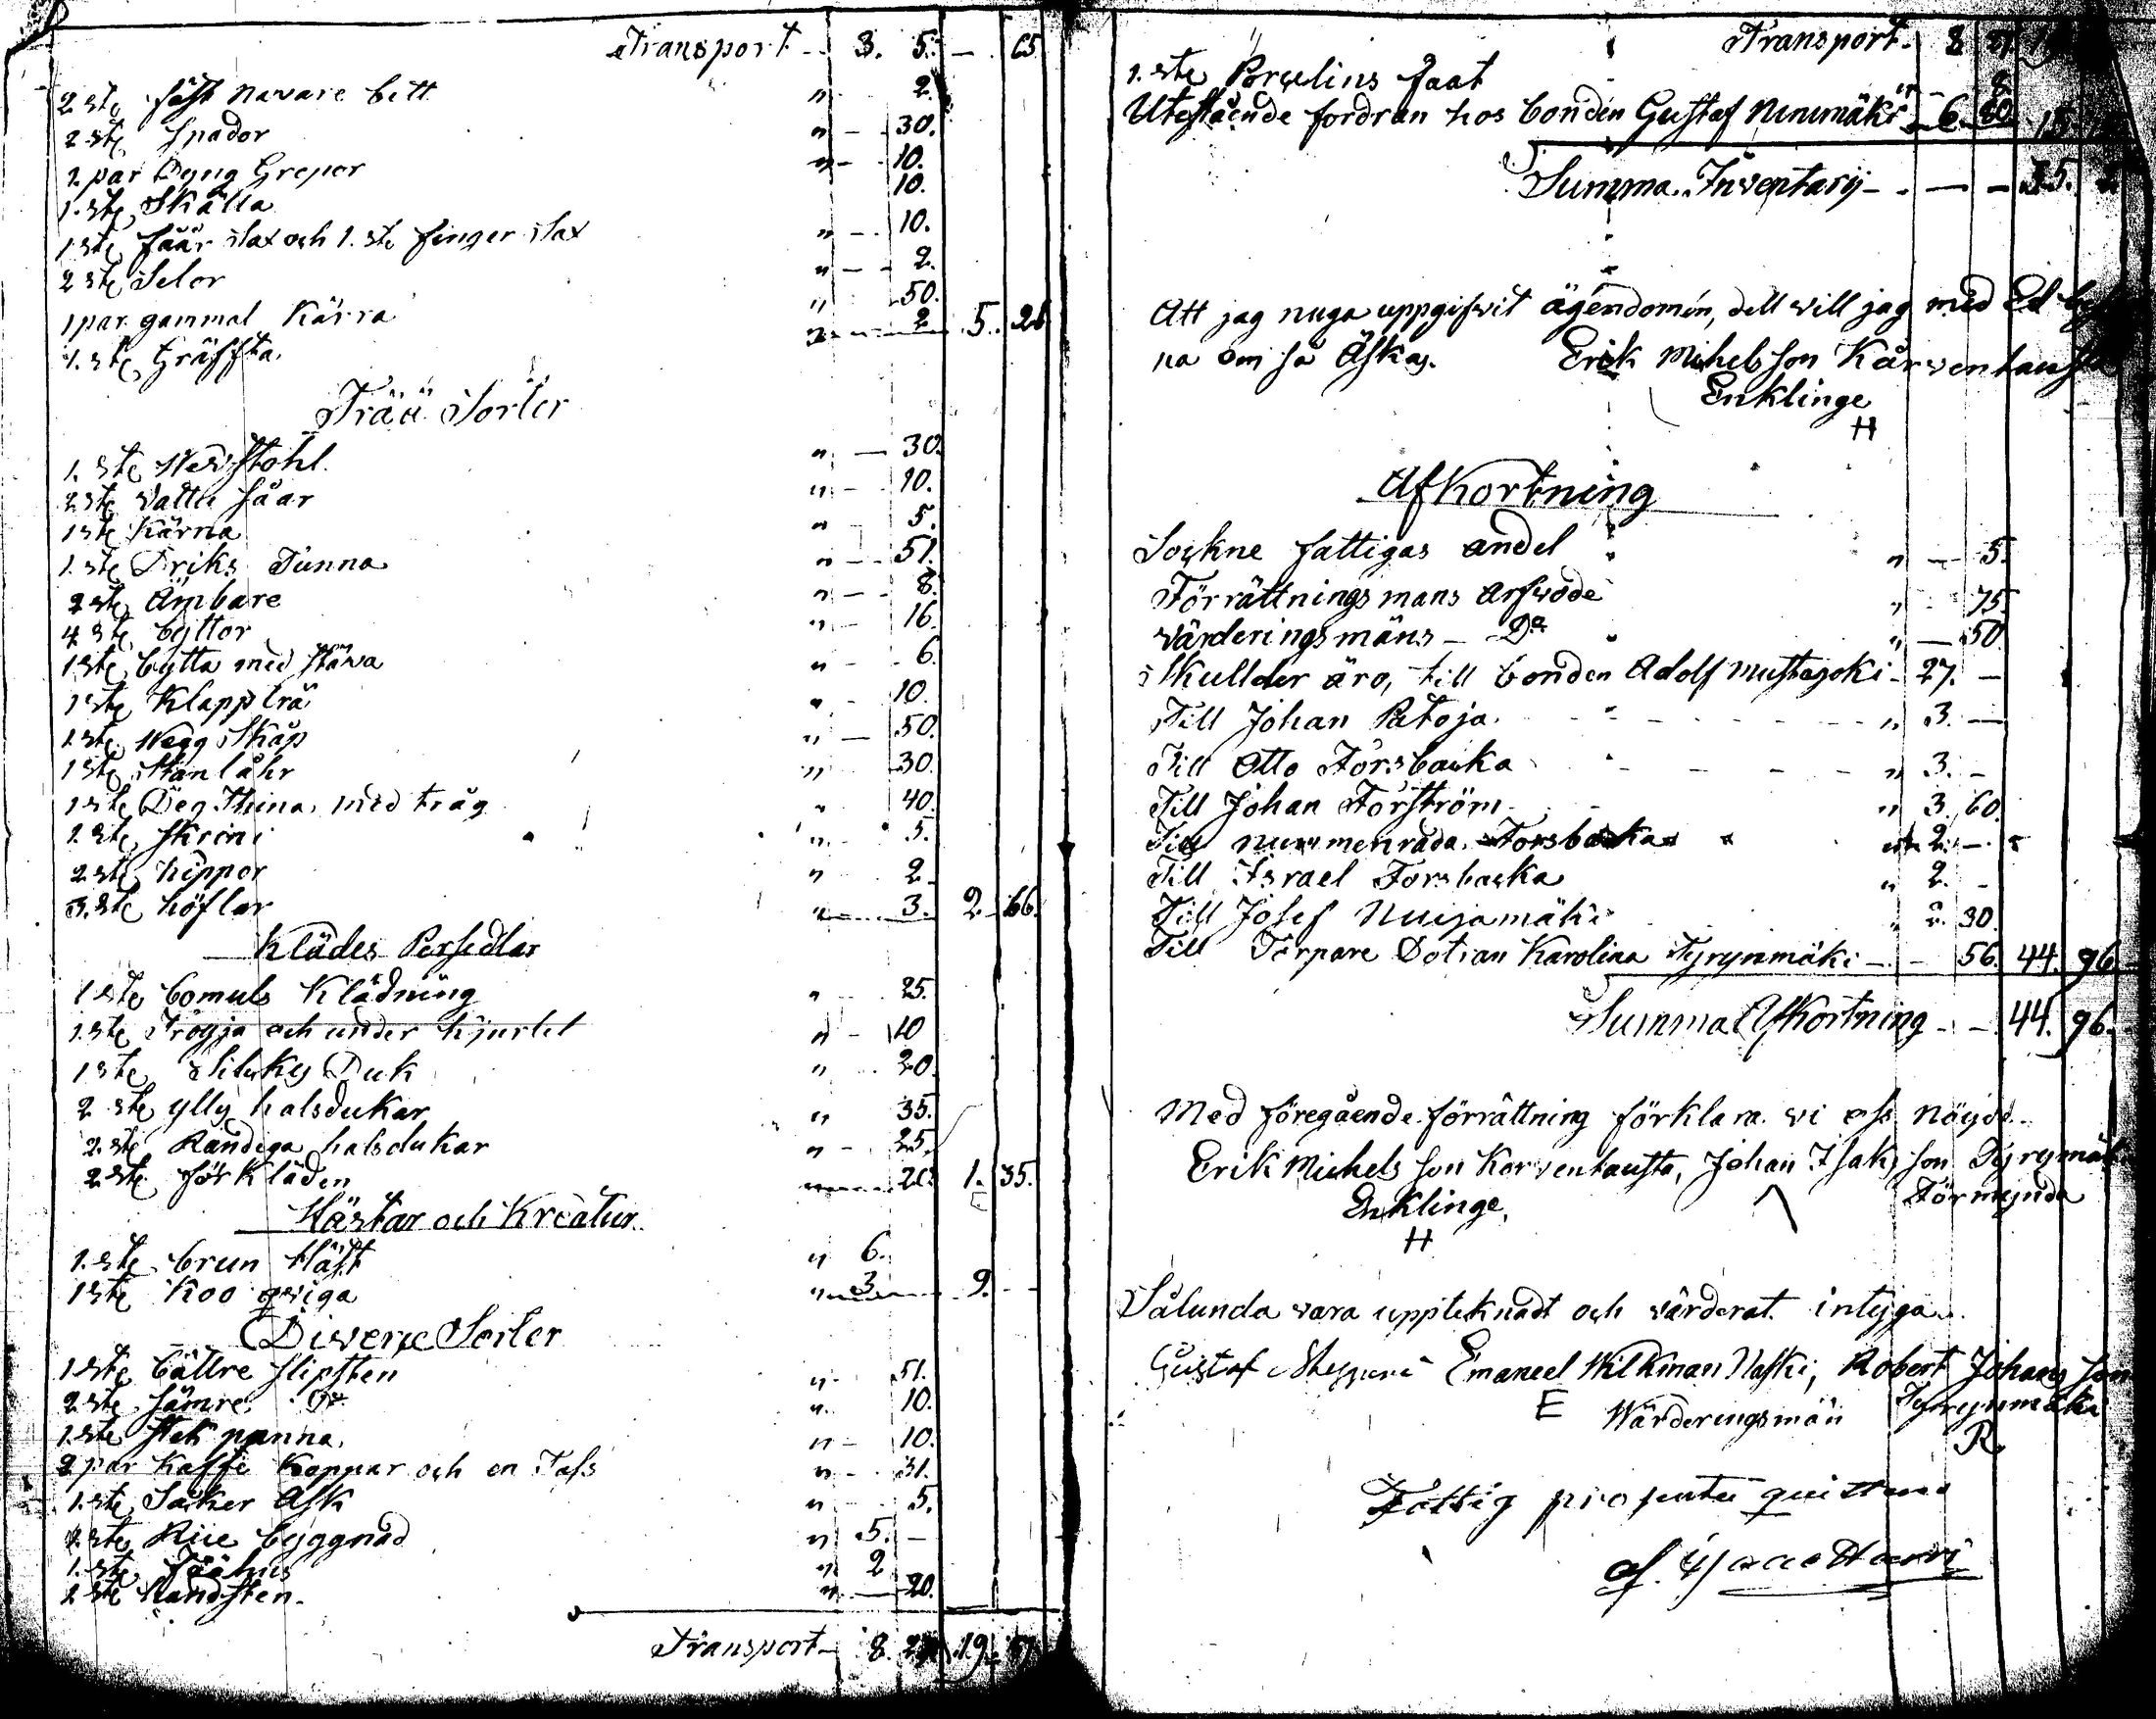 Transport 3. 5. — 65
2 stc fäst navare bett " 2.
2 stc Spador " — 30.
1. par Dyng Grepor " — 10.
1. stc Skälla 10.
1 stc fåår sax och 1. stc finger sax " — 10.
2 stc Selor " — 2.
1 par gammal Kärra " 50.
1. stc Gräffta " 2 5. 26
Trää Sorter
1. stc Wefstohl " — 30.
2 stc Vattu såar " — 10.
1 stc Kärna " 5.
1. stc Driks Tunna " — 51.
2 stc Ämbare " — 8.
4 stc byttor " — 16.
1 stc bytta med stäva " — 6.
1 stc Klappträ " — 10.
1 stc Wegg Skåp " — 50.
1 stc Stånlåhr " 30.
1 stc Deg Thina med tråg " 40.
1 stc Skrini " 5.
2 stc kippor " 2
3. stc höflar " 3. 2. 66.
Klädes Persedlar
1 stc bomuls Klädning " 25.
1 stc Tröyja och under kjortel " — 10
1 stc Silky Duk " 20.
2 stc ylly halsdukar " 35.
2. stc Randiga halsdukar " — 25.
2 stc förkläden 20. 1. 35.
Hästar och Kreatur
1. stc brun Häst " 6.
1 stc Koo qwiga " 3 9. —
Diverse Sorter
1 stc bättre slipsten " 51.
2 stc sämre Do " 10.
1 stc stek panna " — 10.
2 par Kaffe Koppar och en Fafs " — 31.
1. stc Såcker Ask " 5.
1. stc Riie byggnad " 5. —
1. stc Fäähus " 2
1 stc Handsten " — 20.
Transport 8. 27. 19.
Transport 8 27. 19
1. stc Porselins Faat " 8
Utestående fordran hos bonden Gustaf Ninimäki 6. 80 15
Summa Inventarij — 35. 2
Att jag nuga uppgifvit ägendomen, dett will jag med Ed
na om så Äskas. Erik Michelsson Karwentausta
Enklinge
H
Afkortning
Sockne fattigas andel " — 5.
Förrättningsmans arfwode " 75.
Värderingsmäns Do " — 50.
Skullder äro, till bonden Adolf Mustajoki 27. —
Till Johan Patoja " 3. —
Till Otto Forsbacka " 3. —
Till Johan Forström " 3. 60.
Till Forsbacka 2. —
Till Israel Forsbacka " 2. —
Till Josef Nurjamäki " 2. 30.
Till Torpare Dotran Karolina Tyrynmäki — 56. 44. 96
Summa Afkortning — 44. 96.
Med föregående förrättning förklara vi ofs nöyde
Erik Michelsson Korventausta, Johan Isaks son Tyrymäki
Enklinge, Förmynda
H
Sålunda vara uppteknadt och värderat intyga
Gustaf Emanuel Wilkman Naski, Robert Johans son
E Wärderingsmän Tyrynmäki
R
Fattig prosenten quitteras
af